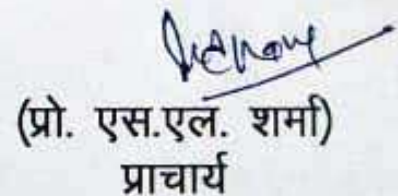 (प्रो. एस.एल. शर्मा)
प्राचार्य